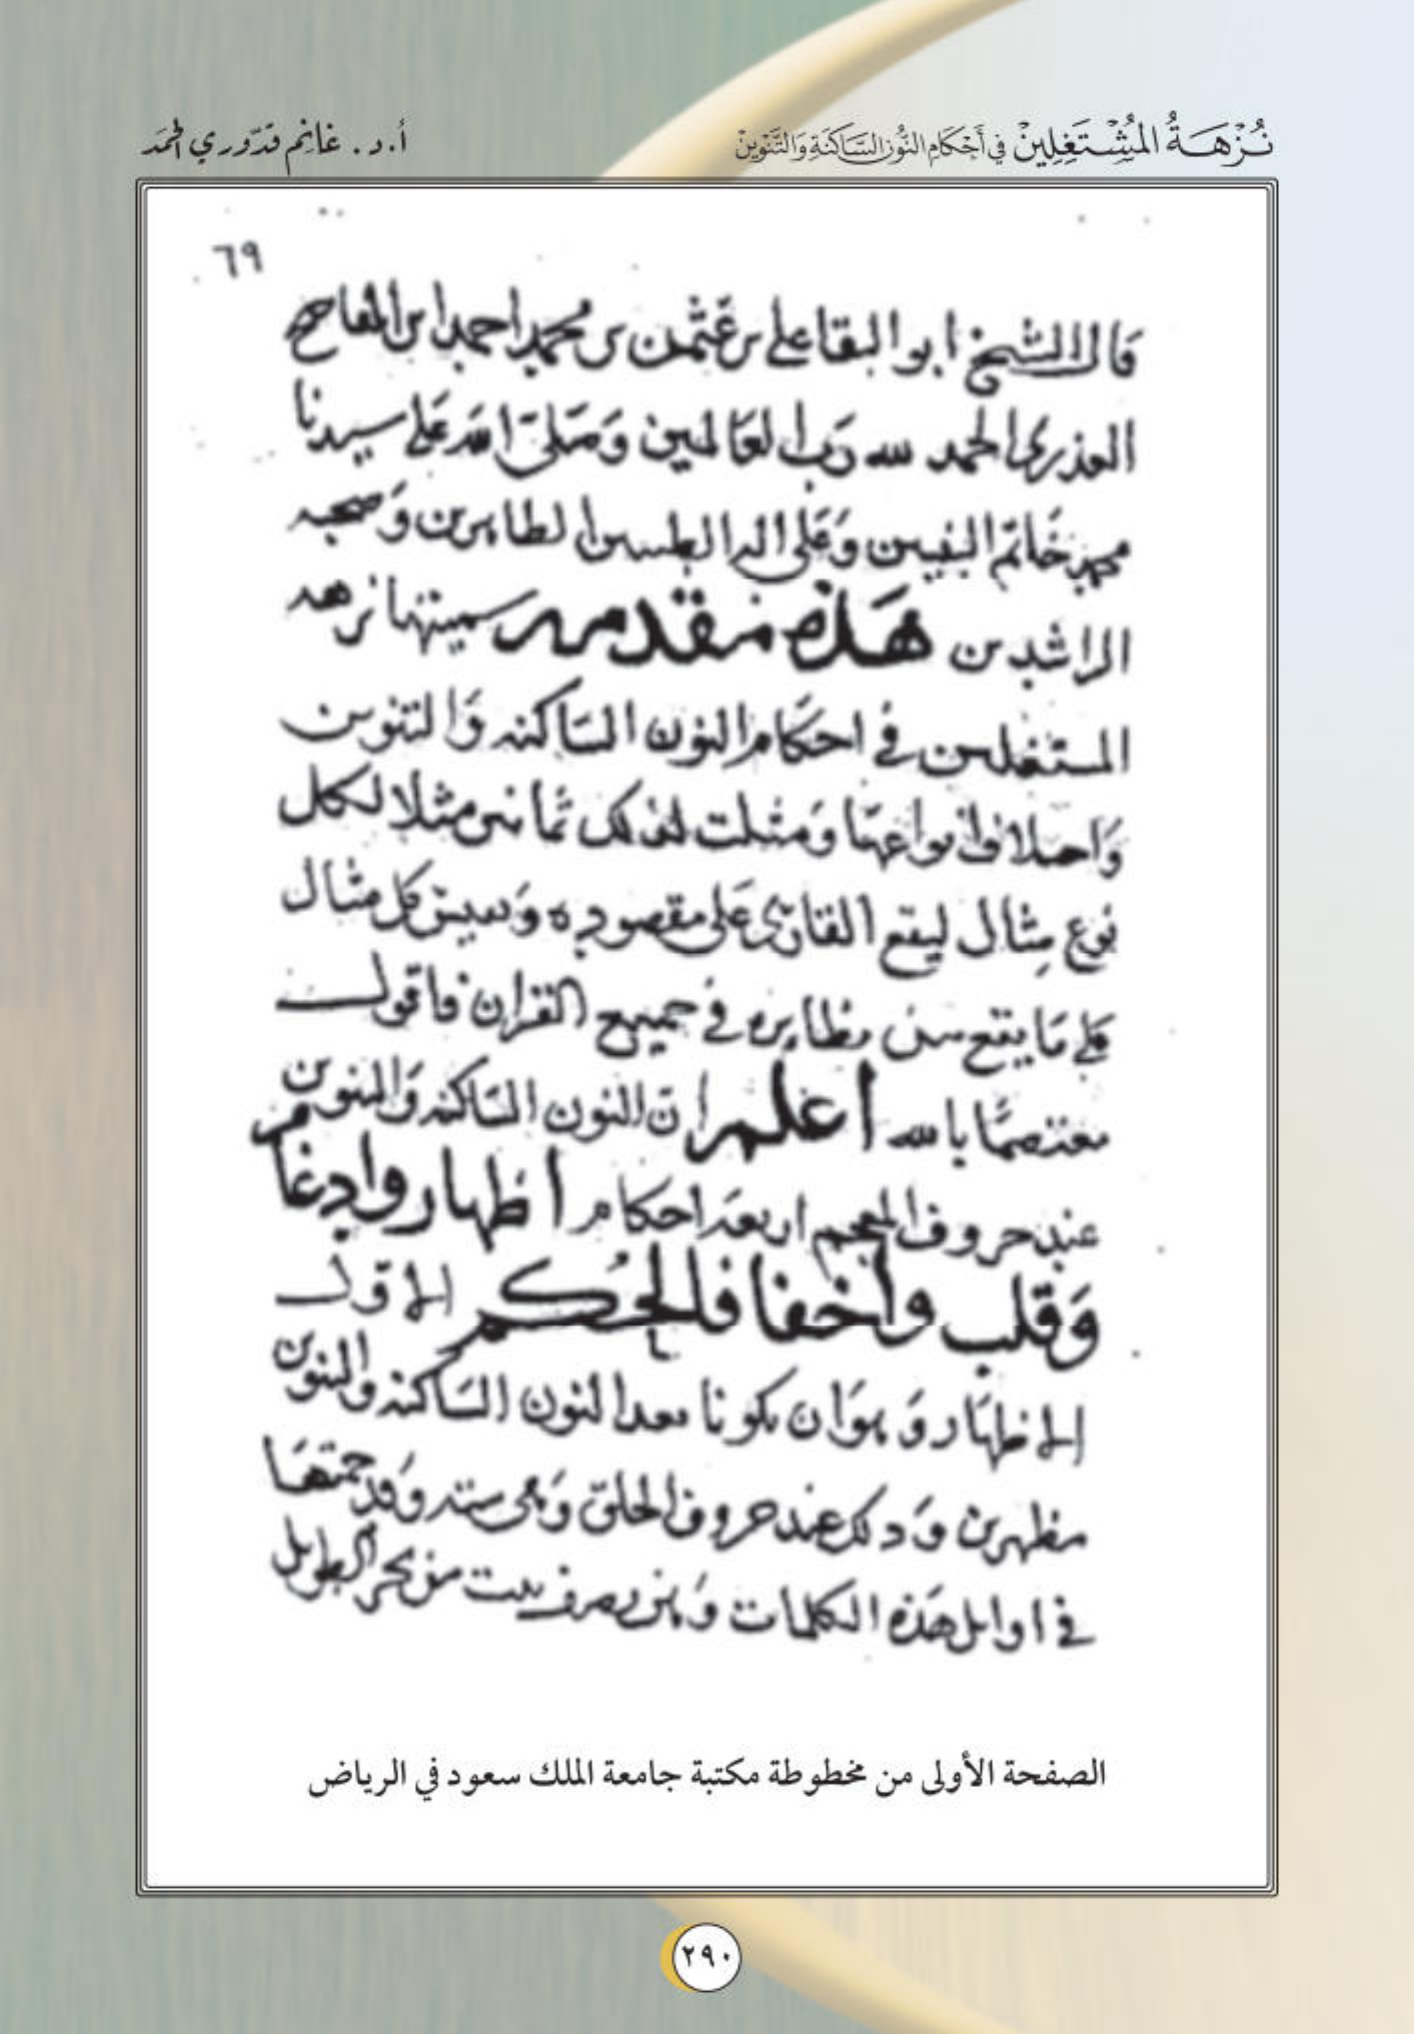 نُزْهَةُ المُشْتَغِلِينْ في أَحْكَامِ النُّونِ السَّاكِنَةِ وَالتَّنْوِينْ
أ.د. غانِم قدّوري الحمَد
٦٩
قال الشيخ ابو البقا على بن عثمن بن محمد احمد ابن القاصح
العذرى الحمد لله رَب العَالمين وَصَلىّ الله عَلى سيدنا
محمد خَاتم النبيين وَعَلى اله الطيبين الطاهرين وَصحبه
الراشدين هَذه مقدمه سميتها نزهه
المشتغلين في احكَام النون السَاكنه وَالتنوين
وَانواعهَا وَمثلت لذلك ثمانين مثلا لكل
نوع مثال ليقع القارئ عَلى مقصوده كل مثال
مَا يقع في جميع القران فاقول
معتصمًا بالله اعلم ان النون السَاكنه وَالتنوين
عند حروف المعجم اربعَه احكام اظهار وادغام
وَقلب واخفا فالحُكم الاول
الاظهَار وَهوَ ان يكونا بعد النون السَاكنه والتنوين
مظهرين وَذلك عند حروف الحلق وَهى سته وَقد جمعتهَا
في اوايل هَذه الكلمات بيت من بحر الطويل
الصفحة الأولى من مخطوطة مكتبة جامعة الملك سعود في الرياض
٢٩٠